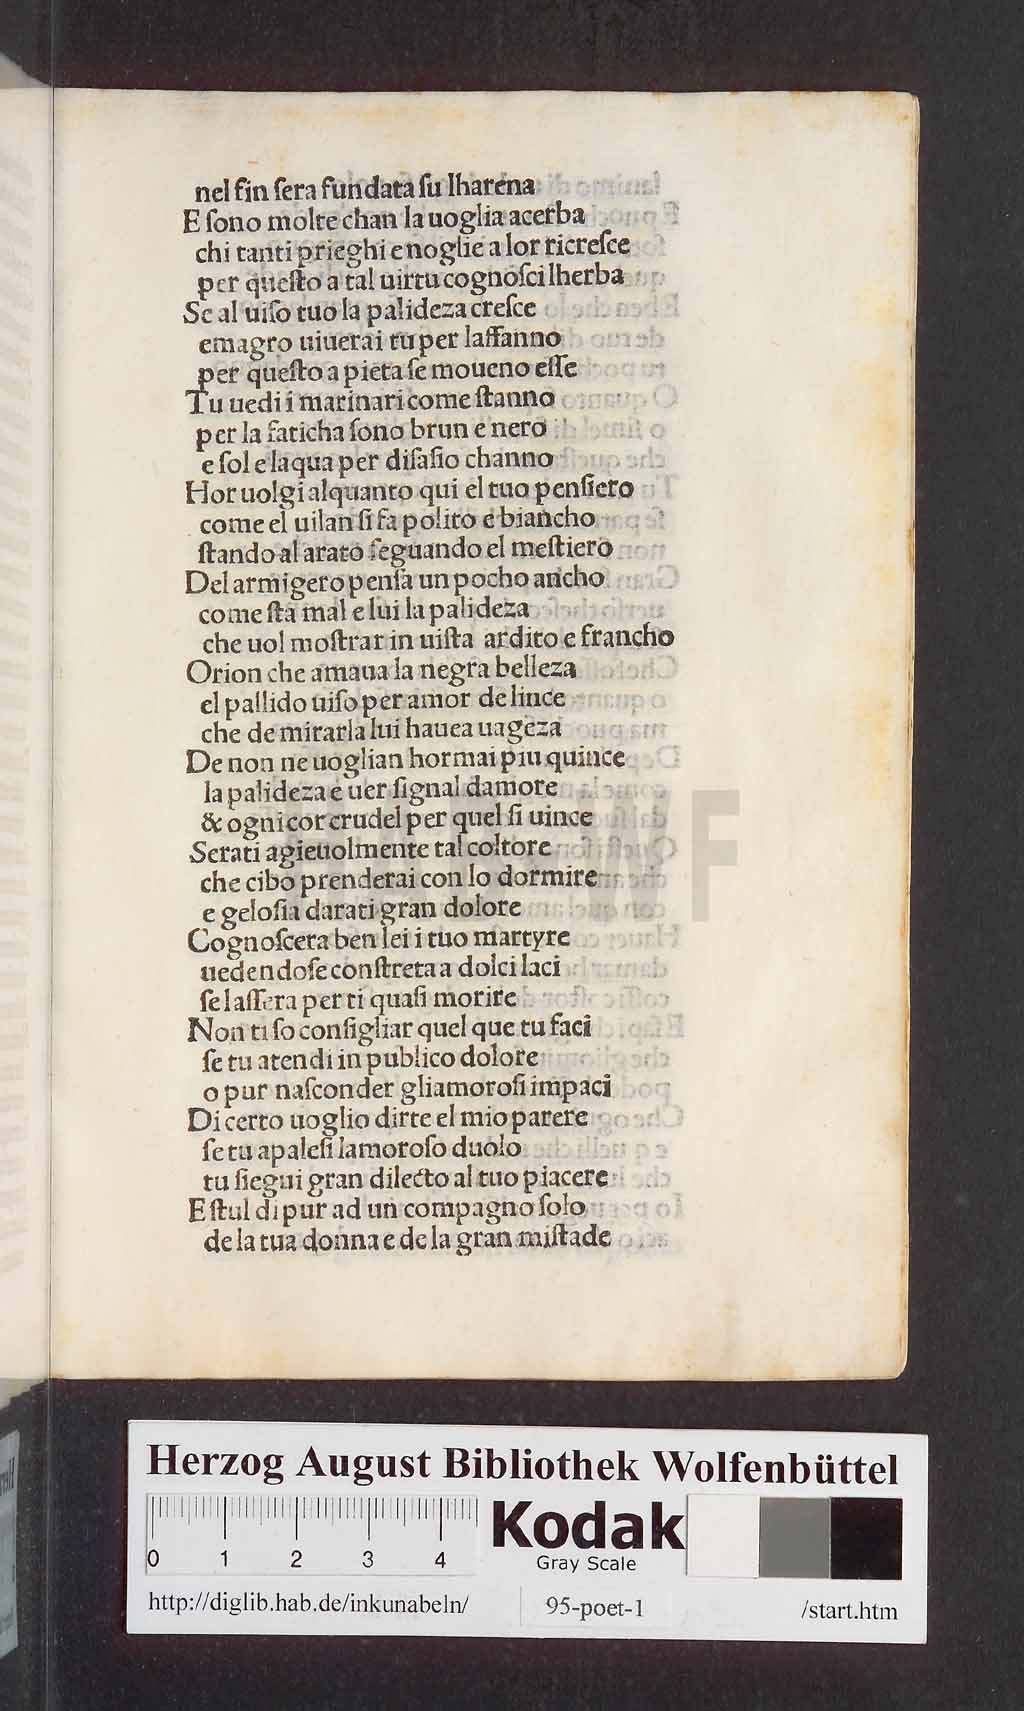 nel fin ſera fundata ſu lharena
E ſono molte chan la uoglia acerba
chi tanti prieghi e noglie a lor ricreſce
per queſto a tal uirtu cognoſci lherba
Se al uiſo tuo la palideza creſce
emagro uiuerai tu per laffanno
per queſto a pieta ſe moueno eſſe
Tu uedi i marinari come ſtanno
per la faticha ſono brun e nero
e ſol e laqua per diſaſio channo
Hor uolgi alquanto qui el tuo penſiero
come el uilan ſi fa polito e biancho
ſtando al arato ſeguando el meſtiero
Del armigero penſa un pocho ancho
come ſta mal e lui la palideza
che uol moſtrar in uiſta ardito e francho
Orion che amaua la negra belleza
el pallido uiſo per amor de lince
che de mirarla lui hauea uageza
De non ne uoglian hormai piu quince
la palideza e uer ſignal damore
& ogni cor crudel per quel ſi uince
Serati agieuolmente tal coltore
che cibo prenderai con lo dormire
e geloſia darati gran dolore
Cognoſcera ben lei i tuo martyre
uedendoſe conſtreta a dolci laci
ſe laſſera per ti quaſi morire
Non ti ſo conſigliar quel que tu faci
ſe tu atendi in publico dolore
o pur naſconder gliamoroſi impaci
Di certo uoglio dirte el mio parere
ſe tu apaleſi lamoroſo duolo
tu ſiegui gran dilecto al tuo piacere
E ſtul di pur ad un compagno ſolo
de la tua donna e de la gran miſtade
HAB WF
Herzog August Bibliothek Wolfenbüttel
0 1 2 3 4
Kodak
Gray Scale
http://diglib.hab.de/inkunabeln/ 95-poet-1 /start.htm